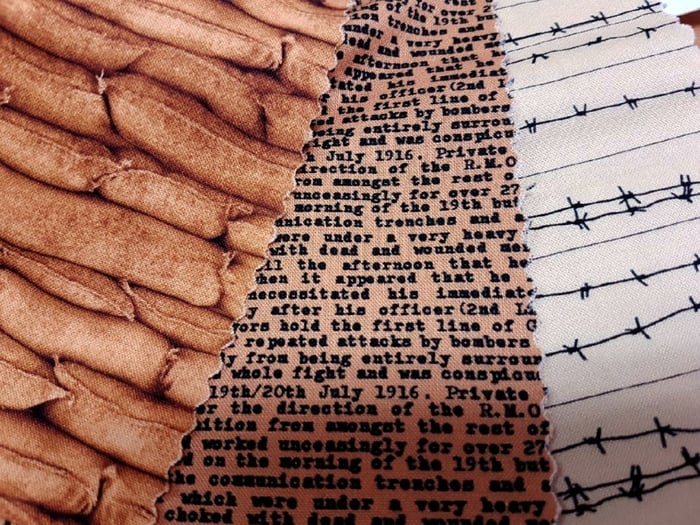 for that
the 19th but
trenches and
under a very heavy
and wounded
afternoon that he
appeared that he
his immediat
his officer (2nd L
the first line of
attacks by bombers
being entirely surrou
ght and was conspicu
July 1916. Private
irection of the R.M.O
from amongst the rest o
unceasingly for over 27
morning of the 19th but
unication trenches and
were under a very heavy
with dead and wounded men
ll the afternoon that he
hen it appeared that he
necessitated his immediate
y after his officer (2nd L
vors hold the first line of G
repeated attacks by bombers
y from being entirely surroun
whole fight and was conspicuou
19th/20th July 1916. Private
er the direction of the R.M.O
ition from amongst the rest of
worked unceasingly for over 27
d on the morning of the 19th but
he communication trenches and
which were under a very heavy
choked with dead and wounded m